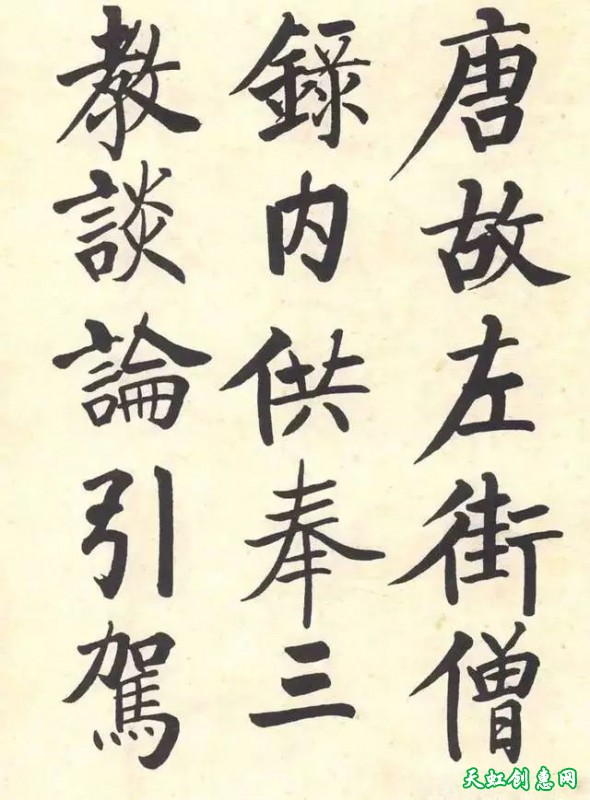 唐故左街僧
錄内供奉三
教談論引駕
天虹创惠网